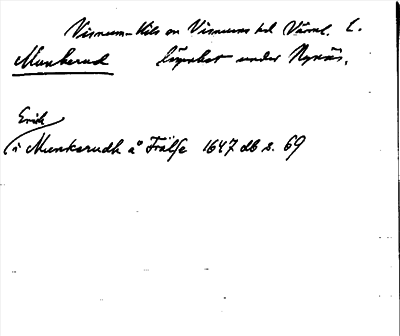 Visnum-Kils sn Visnums hd Värml. L.
Munkerud löpebol under Rynäs.
Erik
i Munkerudh å Frälse 1647 db s. 69